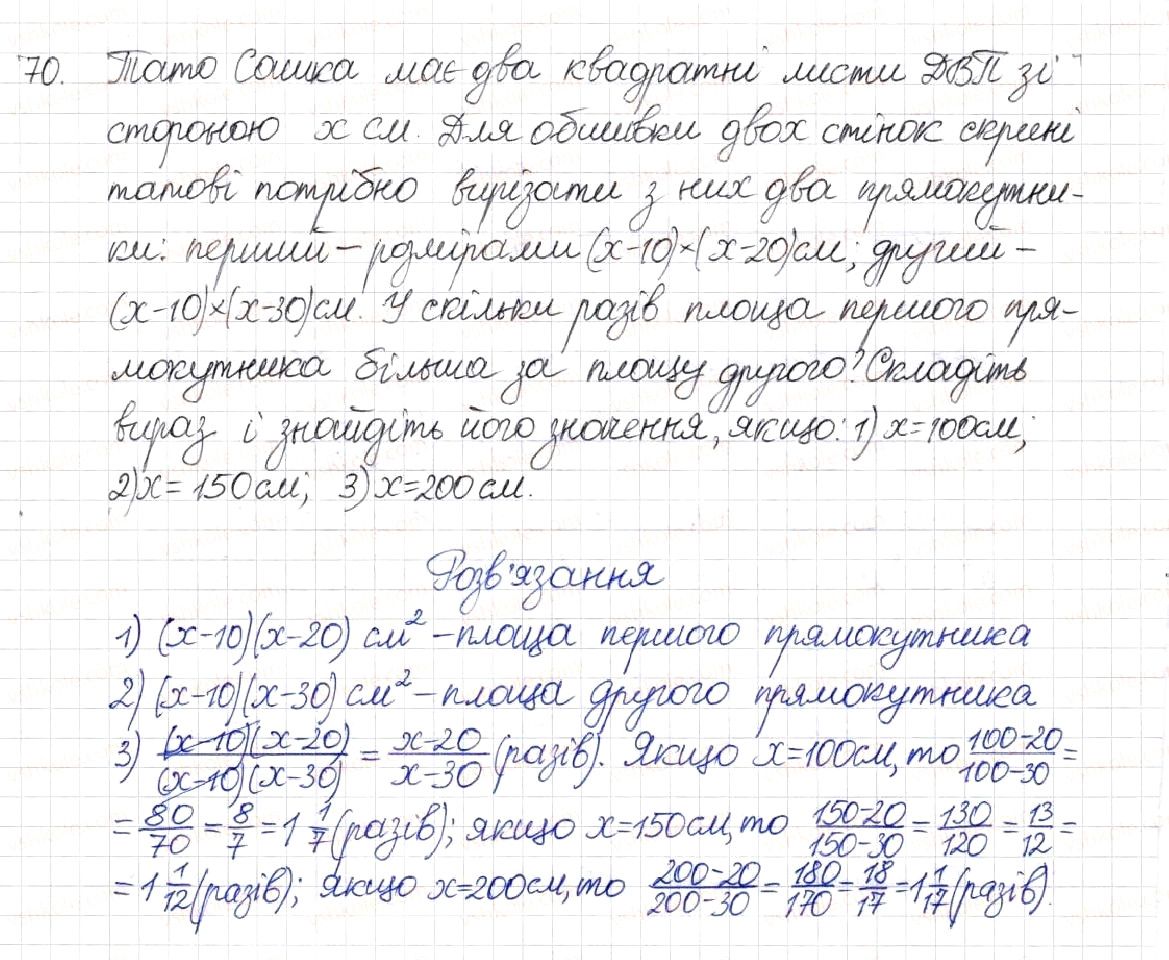 70. Тато Сашка має два квадратні листи ДВП зі
стороною x см. Для обшивки двох стінок скрині
татові потрібно вирізати з них два прямокутни-
ки: перший – розмірами (x-10)×(x-20)см; другий –
(x-10)×(x-30)см. У скільки разів площа першого пря-
мокутника більша за площу другого? Складіть
вираз і знайдіть його значення, якщо: 1) x=100см;
2) x= 150см; 3) x=200см.
Розв'язання
1) (x-10)(x-20) см² – площа першого прямокутника
2) (x-10)(x-30) см² – площа другого прямокутника
3) (x-10)(x-20)/(x-10)(x-30) = x-20/x-30 (разів). Якщо x=100см, то 100-20/100-30 =
= 80/70 = 8/7 = 1 1/7 (разів); якщо x=150см, то 150-20/150-30 = 130/120 = 13/12 =
= 1 1/12 (разів); якщо x=200см, то 200-20/200-30 = 180/170 = 18/17 = 1 1/17 (разів).